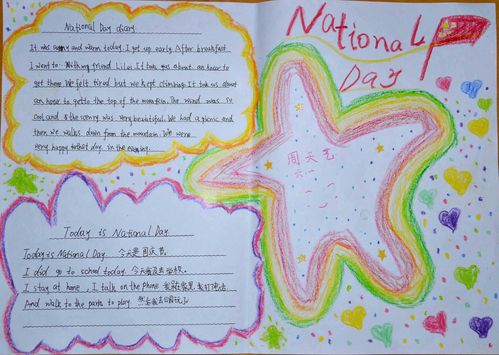 National Day diary
It was sunny and warm today. I got up early. After breakfast
I went to With my friend Lilei. It took gus about an hour to
get there. We felt tired but we kept climbing. It took us about
an hose to getto the top of the mountain. The wind was so
cool and & the was very beautiful. We had a picnic and
then we walks down from the mountain. We were
very happy tothat day in the evening.
National
Day
周天艺
六一
Today is National Day
Today is National Day 今天是国庆节.
I did go to school today 今天我没去学校.
I stay at home, I talk on the phone 我在家里
And walk to the park to play